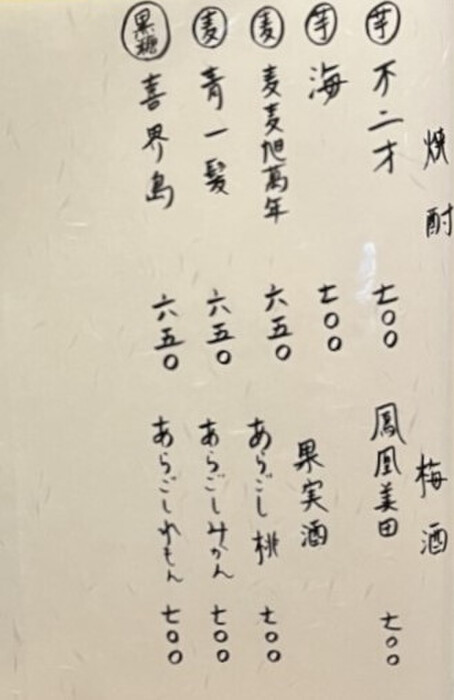 焼酎
芋 不二才 七〇〇
芋 海 七〇〇
麦 麦麦旭萬年 六五〇
麦 青一髪 六五〇
黒糖 喜界島 六五〇
梅酒
鳳凰美田 七〇〇
果実酒
あらごし桃 七〇〇
あらごしみかん 七〇〇
あらごしれもん 七〇〇